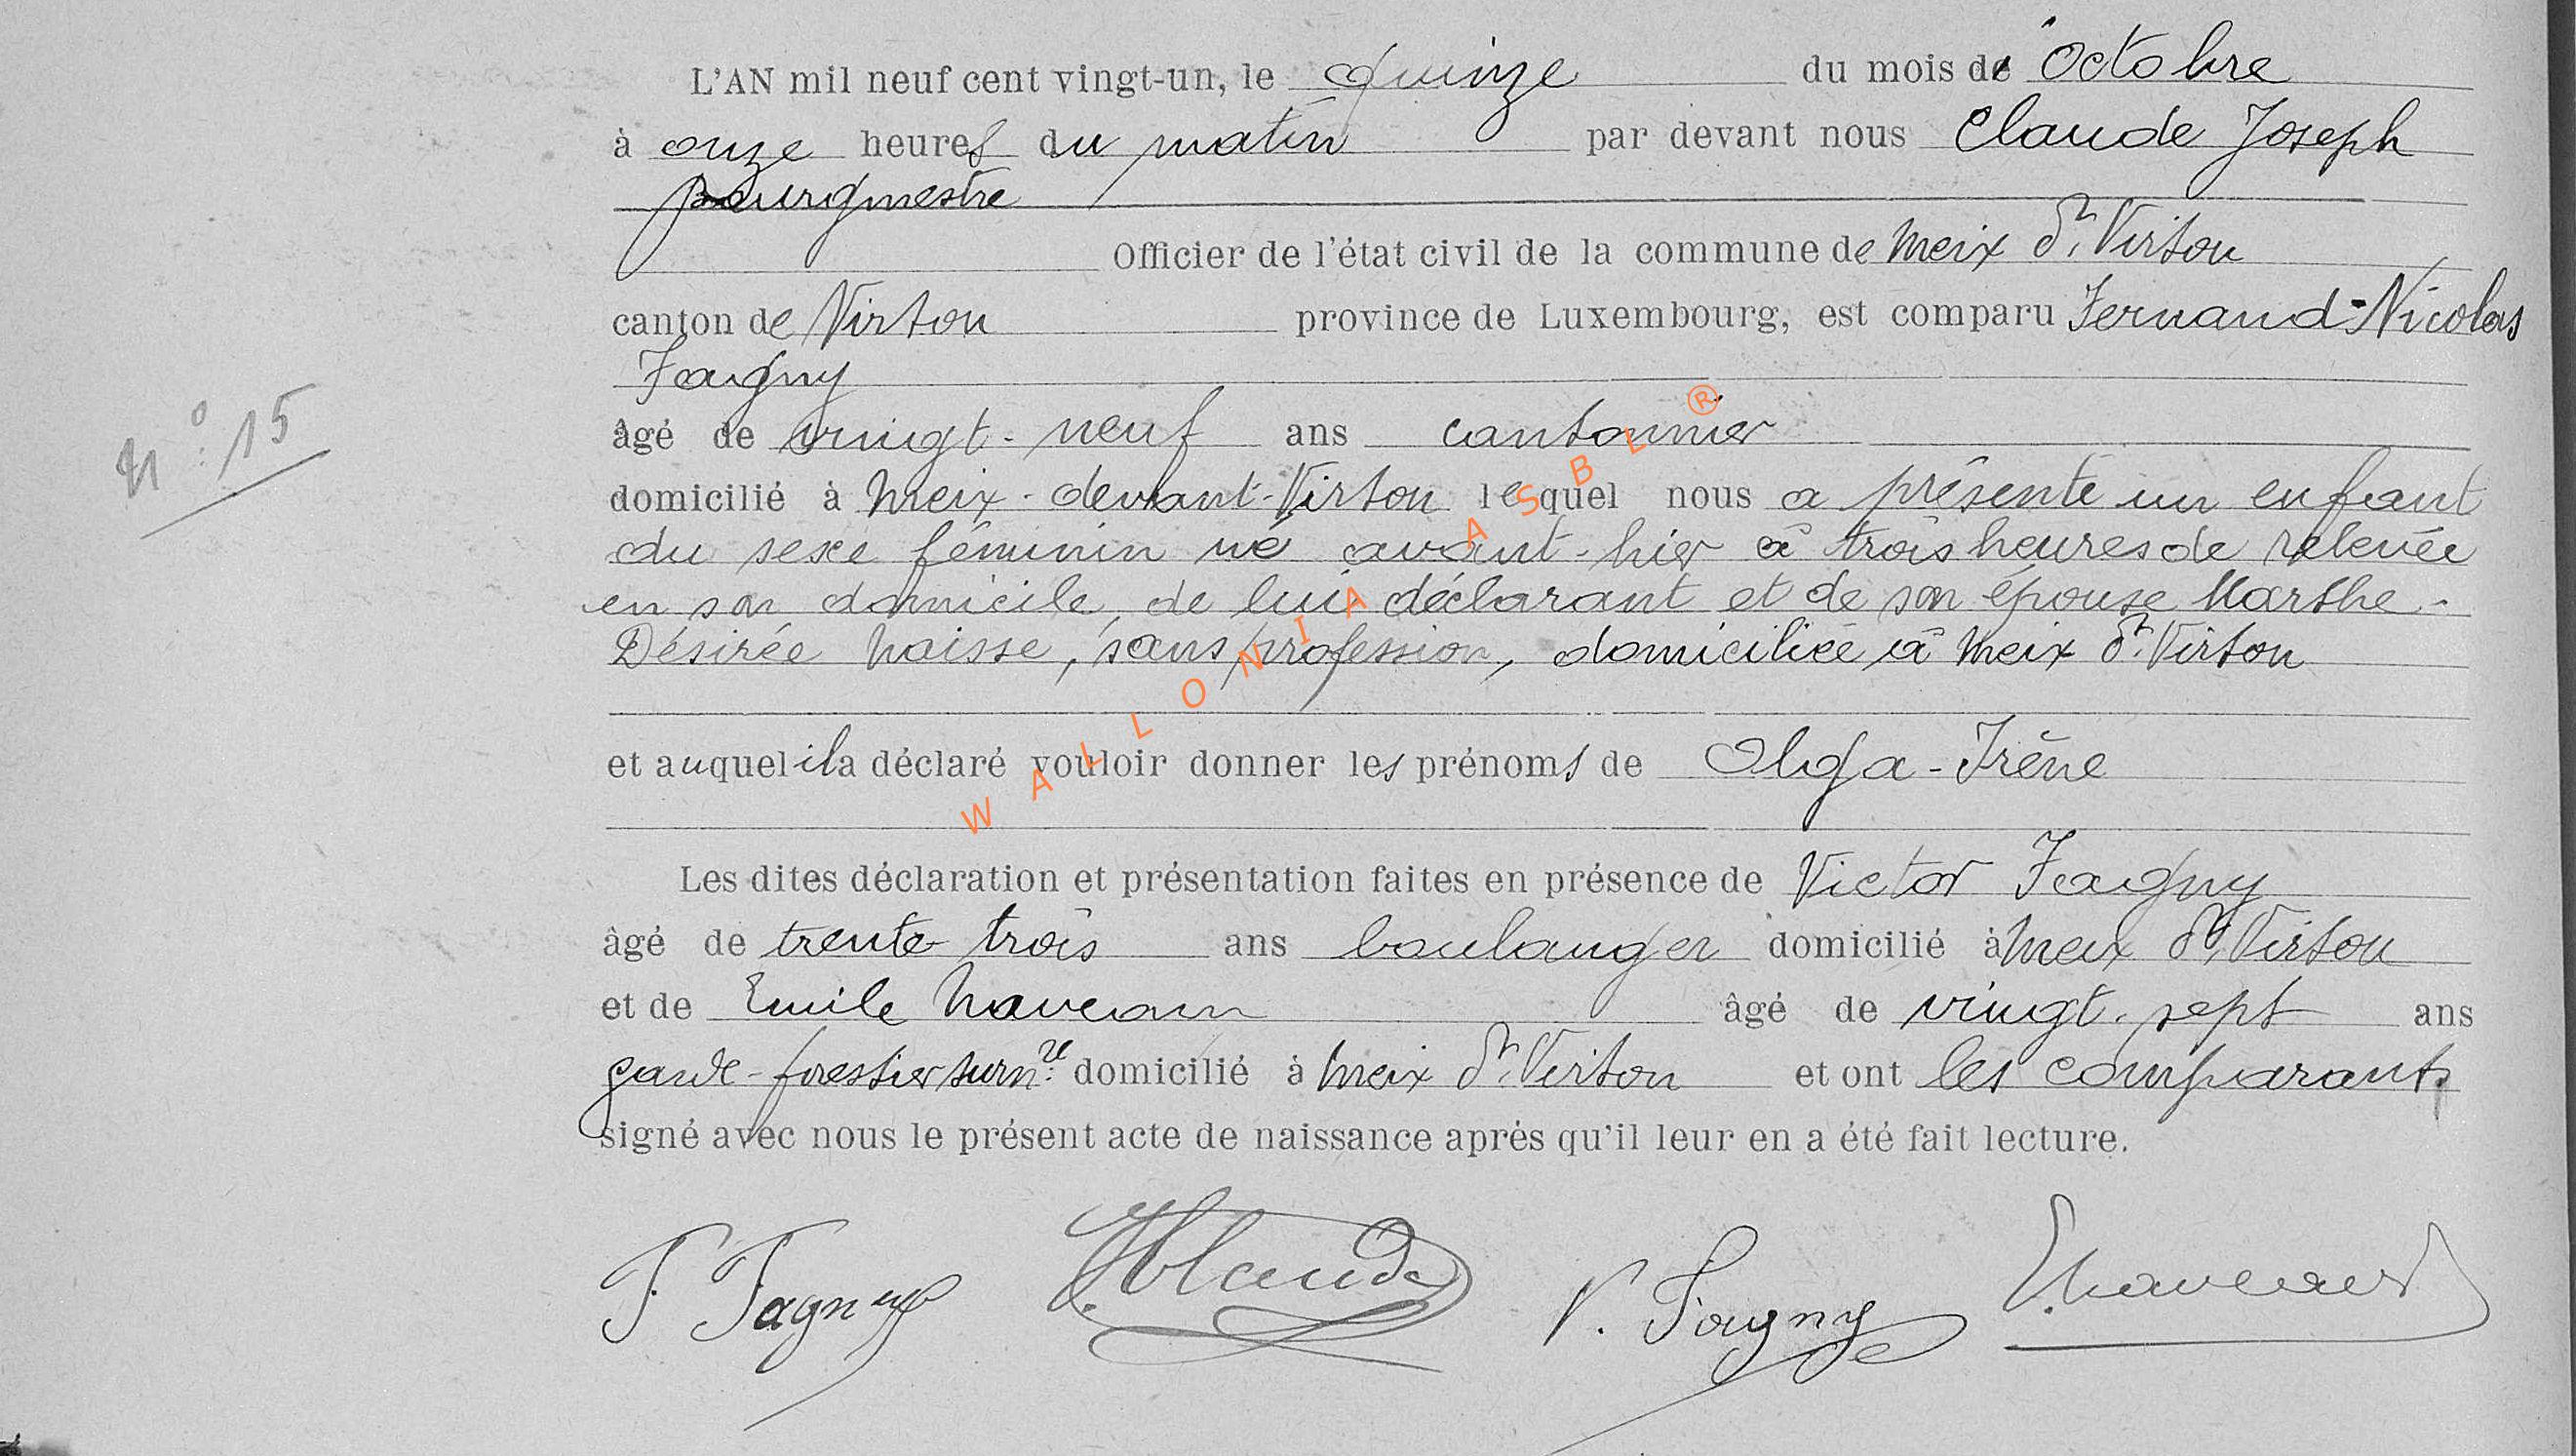 L'AN mil neuf cent vingt-un, le quinze du mois d'Octobre
à onze heures du matin par devant nous Claude Joseph
bourgmestre
Officier de l'état civil de la commune de Meix dt Virton
canton de Virton province de Luxembourg, est comparu Fernand-Nicolas
Fagny
N° 15
âgé de vingt-neuf ans cantonnier
domicilié à Meix-devant-Virton lequel nous a présenté un enfant
du sexe féminin né avant-hier à trois heures de relevée
en son domicile, de lui déclarant et de son épouse Marthe-
Désirée Naisse, sans profession, domiciliée à Meix dt Virton
et auquel il a déclaré vouloir donner les prénoms de Olga-Irène
Les dites déclaration et présentation faites en présence de Victor Fagny
âgé de trente trois ans boulanger domicilié à Meix dt Virton
et de Emile âgé de vingt-sept ans
garde-forestier surnre domicilié à Meix dt Virton et ont les comparants
signé avec nous le présent acte de naissance après qu'il leur en a été fait lecture.
F. Fagny JClaude V. Fagny
WALLONIA ASBL ®